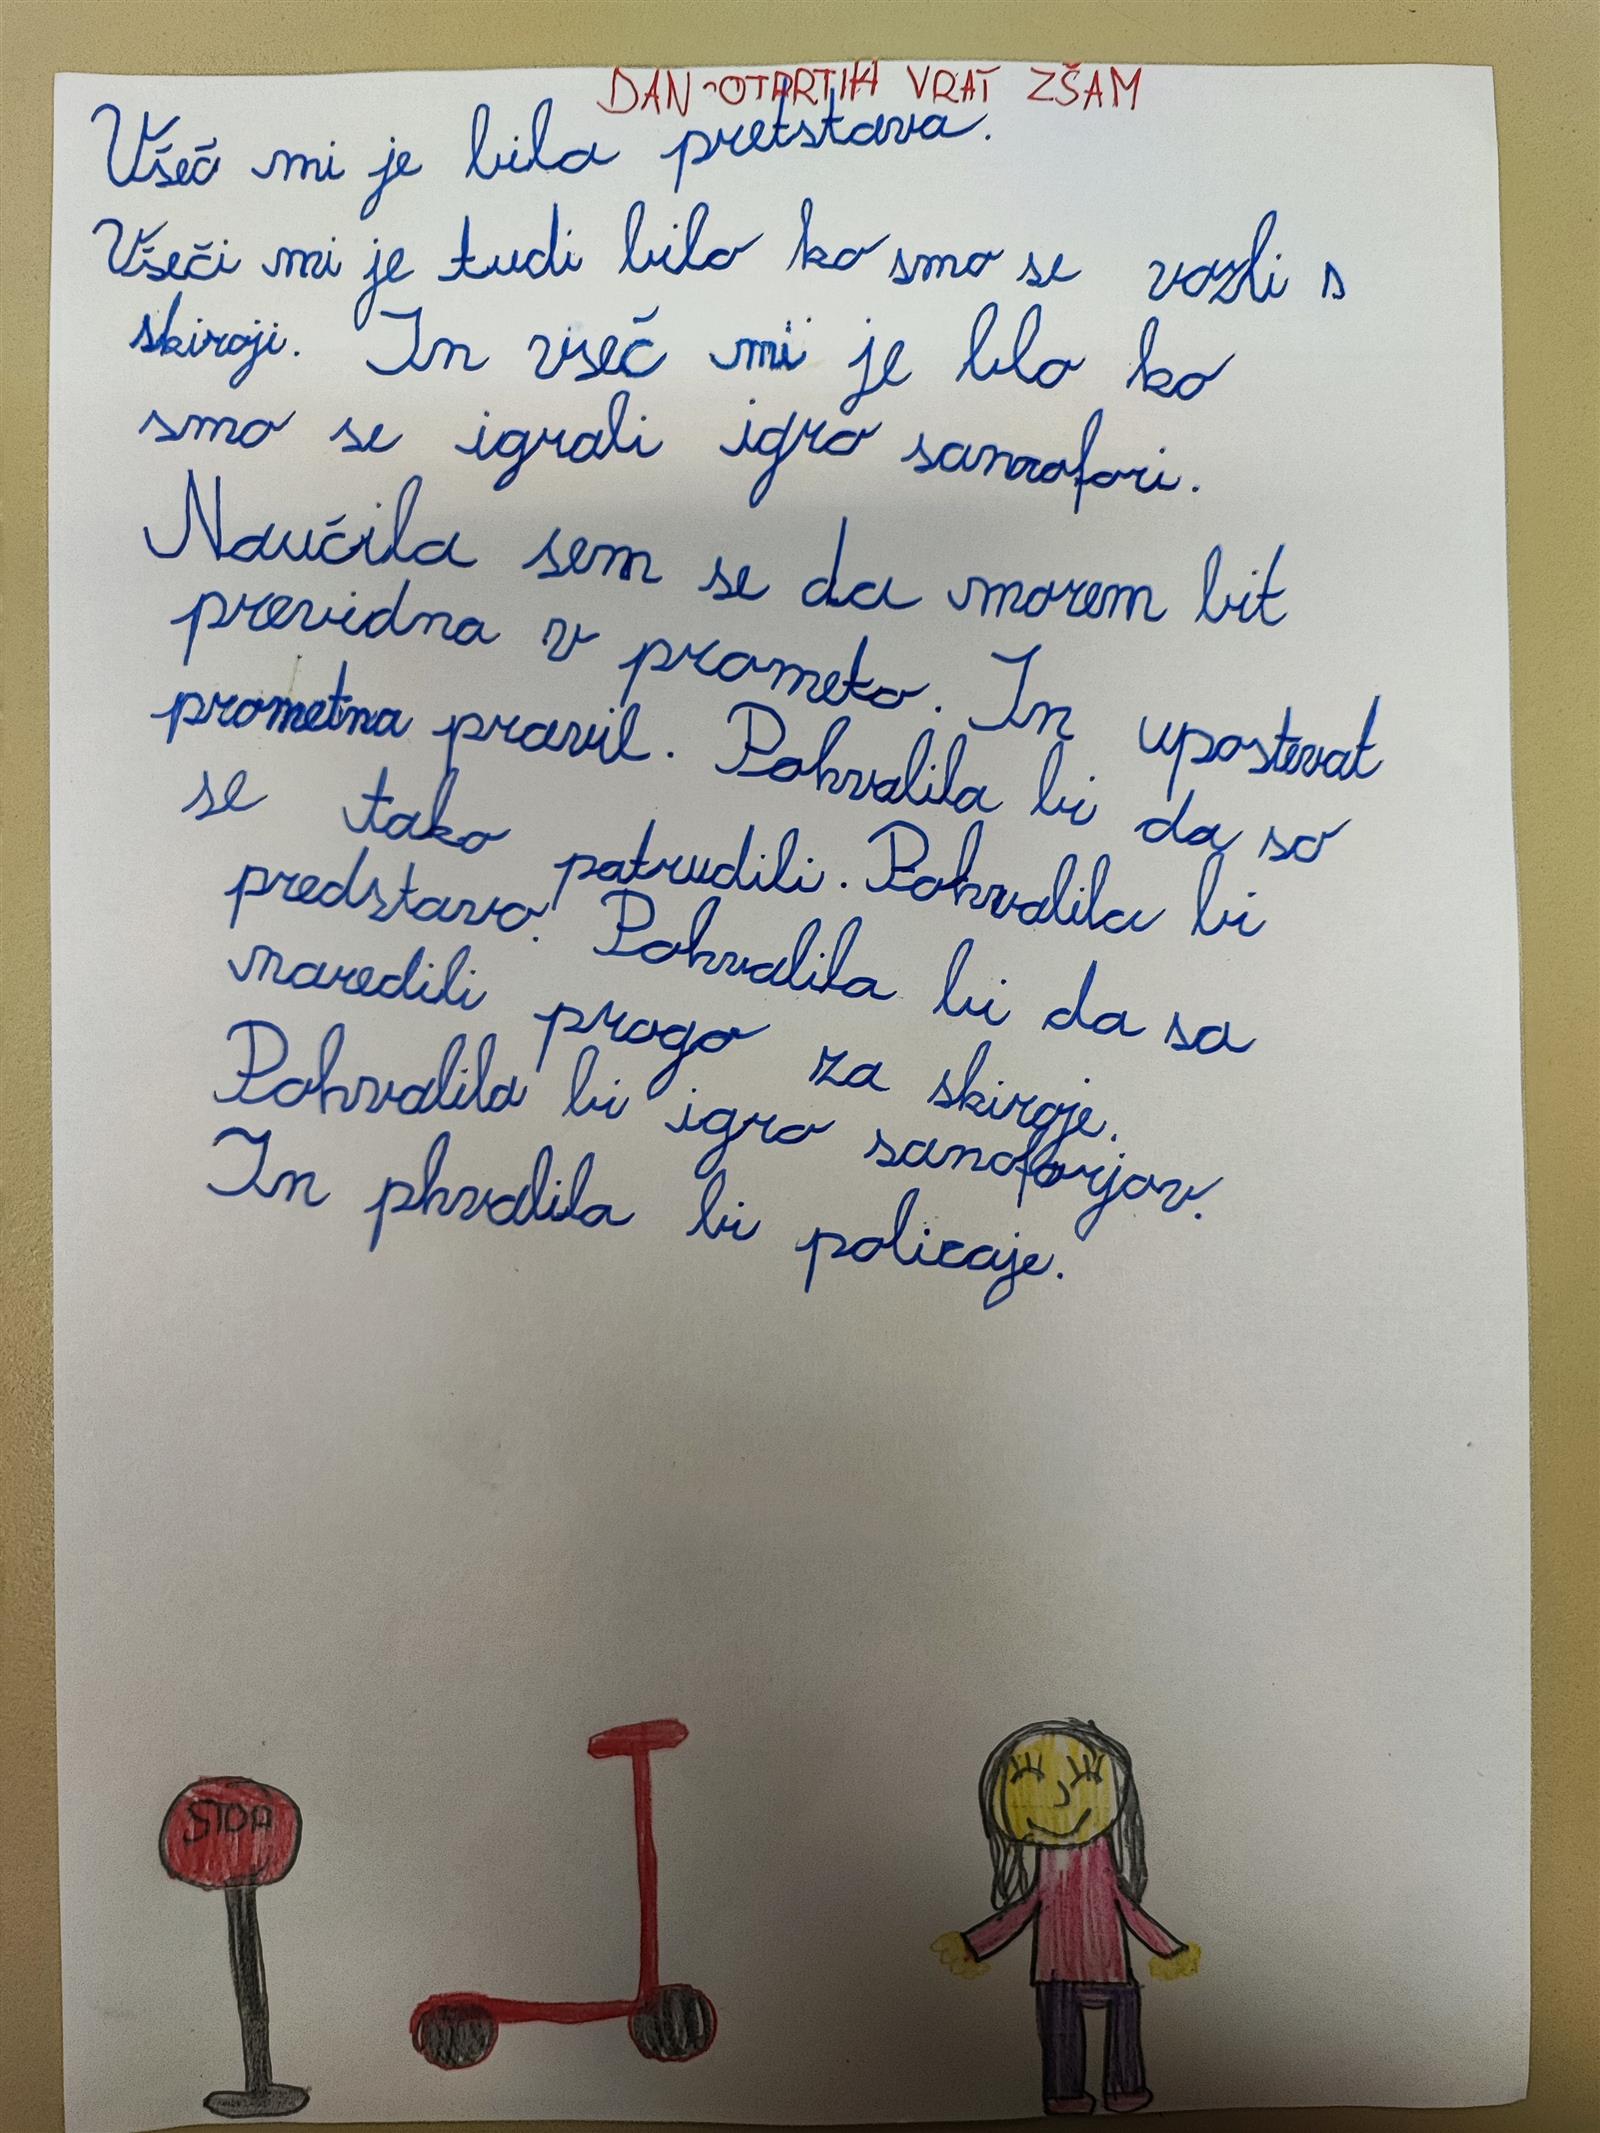 DAN OTPRTIH VRAT ZŠAM
Všeč mi je bila pretstava.
Všeči mi je tudi bilo ko smo se vozli s
skiroji. In všeč mi je blo ko
smo se igrali igro samrofori.
Naučila sem se da morem bit
previdna v prometo. In upoštevat
prometna pravil. Pohvalila bi da so
se tako patrudili. Pohvalila bi
predstavo. Pohvalila bi da so
naredili progo za skiroje.
Pohvalila bi igro samoforjov.
In phvalila bi policaje.
STOP